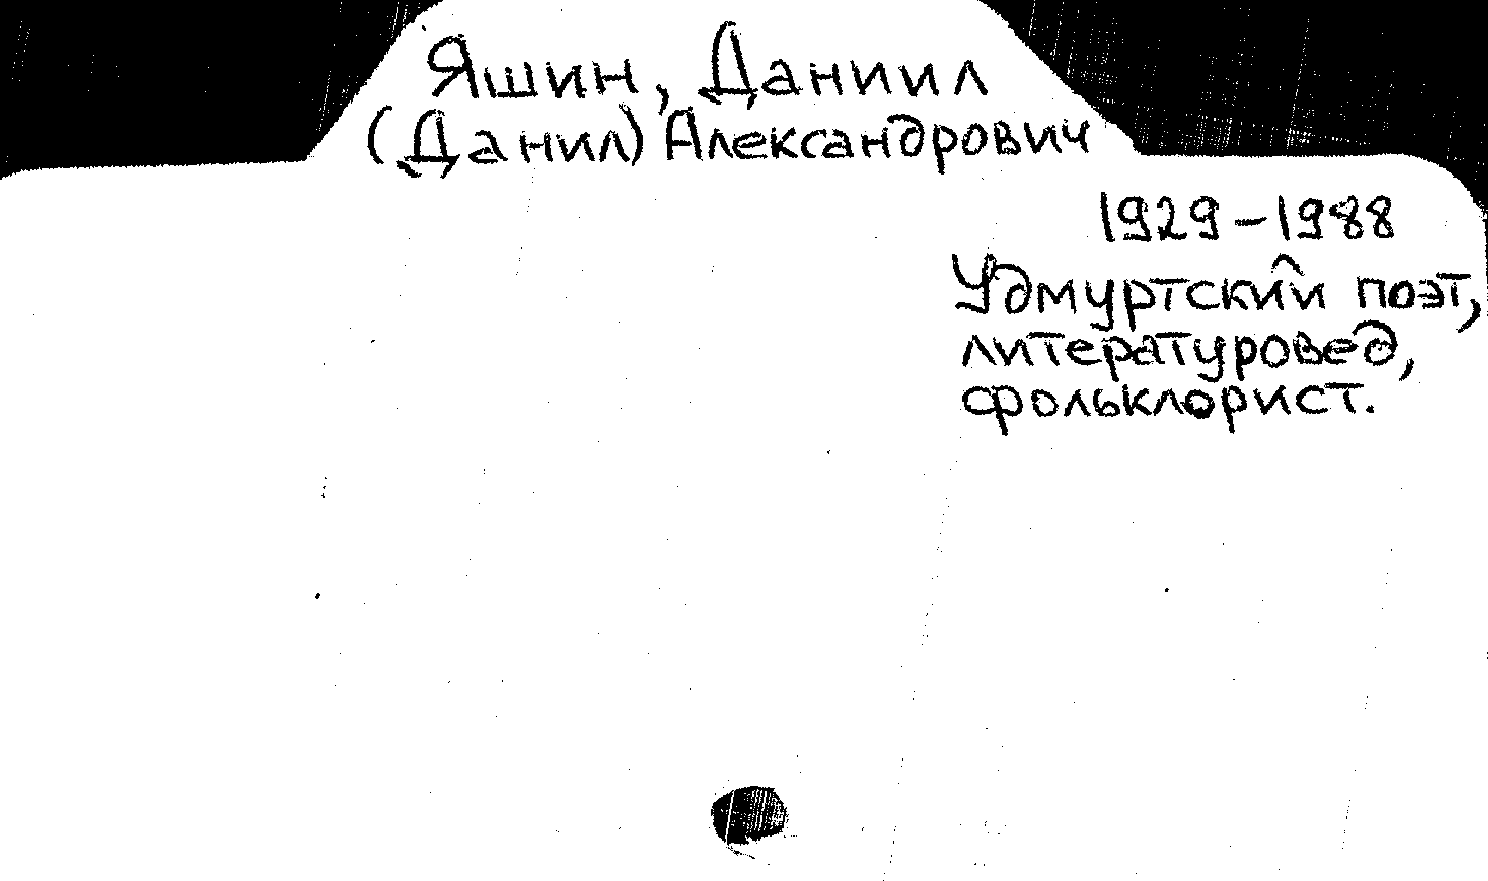 Яшин, Даниил
(Данил) Александрович
1929-1988
Удмуртский поэт,
литературовед,
фольклорист.